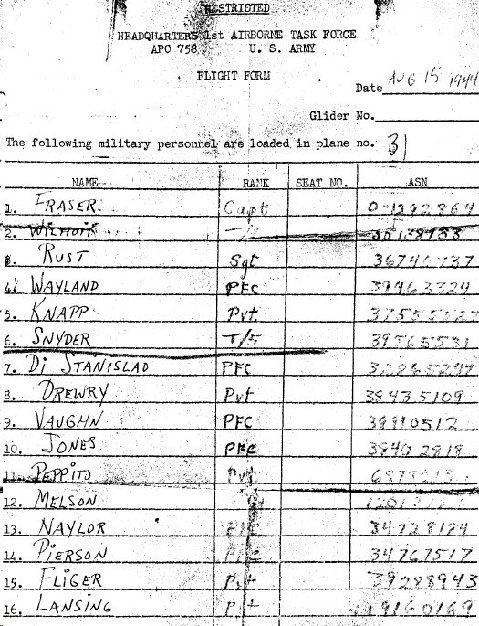 RESTRICTED
HEADQUARTERS 1st AIRBORNE TASK FORCE
APO 758 U. S. ARMY
FLIGHT FORM
Date AUG 15 1944
Glider No.
The following military personnel are loaded in plane no. 31
NAME RANK SEAT NO. ASN
1. FRASER Capt
2.
3. RUST Sgt
4. WAYLAND PFC 39463324
5. KNAPP Pvt
6. SNYDER T/5 39565531
7. DI STANISLAO PFC
8. DREWRY Pvt 38435109
9. VAUGHN PFC
10. JONES PFC
11. PEPPITO Pvt
12. MELSON
13. NAYLOR 34728124
14. PIERSON 34767517
15. FLIGER Pvt 39288943
16. LANSING Pvt 19160169